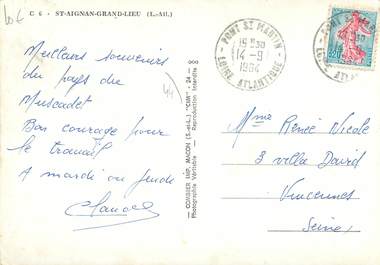 C 6 - ST-AIGNAN-GRAND-LIEU (L.-Atl.)
Meilleurs souvenirs
du pays du
Muscadet
Bon courage pour
le travail
A mardi ou jeudi
Claude
COMBIER IMP. MACON (S.-et-L.) "CIM"
Photographie Véritable - Reproduction Interdite
PONT ST MARTIN
14-9
1964
LOIRE ATLANTIQUE
Mme Renée Nicole
3 villa David
Vincennes
Seine